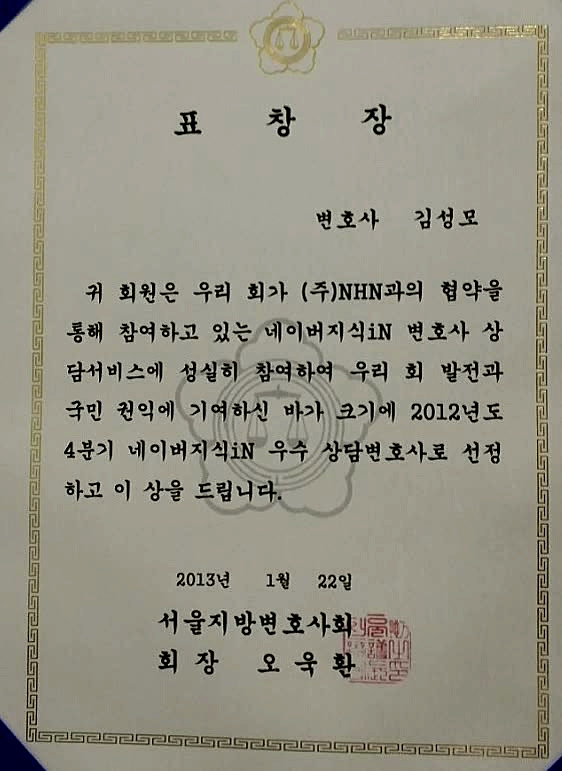 표 창 장
변호사 김성모
귀 회원은 우리 회가 (주)NHN과의 협약을
통해 참여하고 있는 네이버지식iN 변호사 상
담서비스에 성실히 참여하여 우리 회 발전과
국민 권익에 기여하신 바가 크기에 2012년도
4분기 네이버지식iN 우수 상담변호사로 선정
하고 이 상을 드립니다.
2013년 1월 22일
서울지방변호사회
회 장 오 욱 환